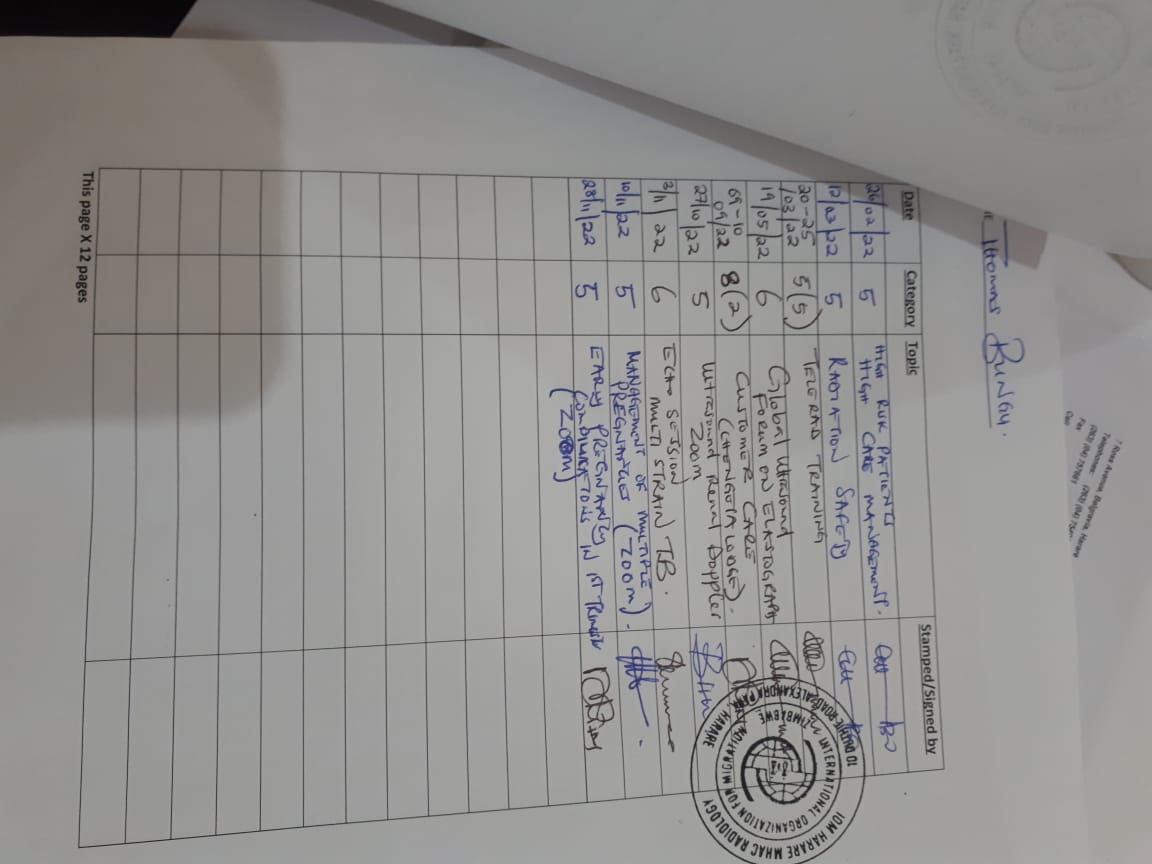 Thomas Bungu.
7 Ross Avenue, Belgravia, Harare
Telephones: (263) (04)
(263) (04) 757661
Fax
Date Category Topic Stamped/Signed by
26/02/22 5 HIGH RISK PATIENTS
HIGH CARE MANAGEMENT.
12/03/22 5 RADIATION SAFETY
20-25
/03/22 5(5) TELERAD TRAINING
19/05/22 6 Global Ultrasound
Forum on ELASTOGRAPH
09-10
09/22 8(2) CUSTOMER CARE
(CHENGETA LODGE).
27/10/22 5 Ultrasound Renal Doppler
Zoom
3/11/22 6 ECHO SESSION
MULTI STRAIN TB.
10/11/22 5 MANAGEMENT OF MULTIPLE
PREGNANCIES (ZOOM).
28/11/22 5 EARLY PREGNANCY
COMPLICATIONS IN 1ST Trimester
(ZOOM)
IOM HARARE MHAC RADIOLOGY
INTERNATIONAL ORGANIZATION FOR MIGRATION HARARE
ZIMBABWE
This page X 12 pages